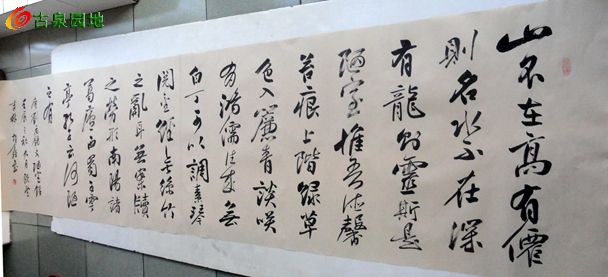 古泉园地
山不在高有僊
則名水不在深
有龍則靈斯是
陋室惟吾德馨
苔痕上階緑草
色入簾青談咲
有鴻儒往來無
白丁可以調素琴
閱金經無絲竹
之亂耳無案牘
之勞形南陽諸
葛廬西蜀子雲
亭孔子云何陋
之有